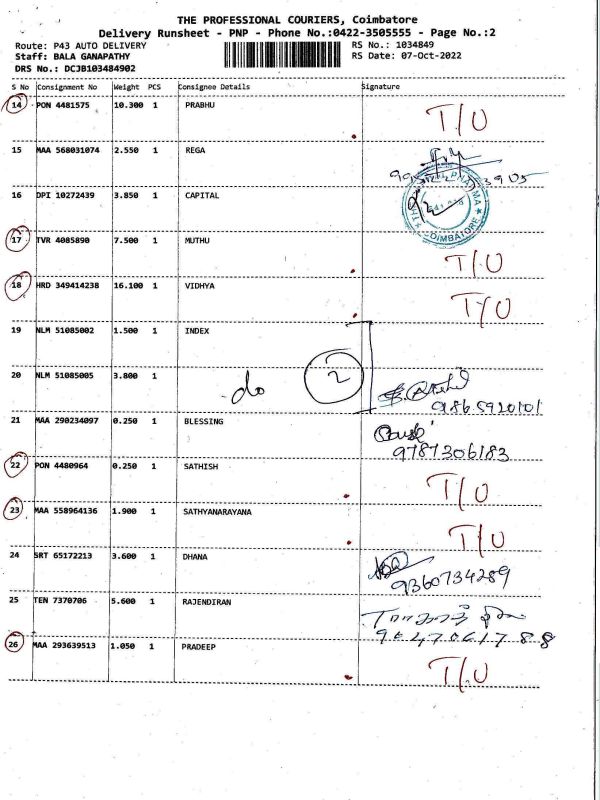 THE PROFESSIONAL COURIERS, Coimbatore
Delivery Runsheet - PNP - Phone No.:0422-3505555 - Page No.:2
Route: P43 AUTO DELIVERY RS No.: 1034849
Staff: BALA GANAPATHY RS Date: 07-Oct-2022
DRS No.: DCJB103484902
S No Consignment No Weight PCS Consignee Details Signature
14 PON 4481575 10.300 1 PRABHU T/U
15 MAA 568031074 2.550 1 REGA
16 DPI 10272439 3.850 1 CAPITAL
17 TVR 4085890 7.500 1 MUTHU T/U
18 HRD 349414238 16.100 1 VIDHYA T/U
19 NLM 51085002 1.500 1 INDEX
20 NLM 51085005 3.800 1 do 2
9865920101
21 MAA 290234097 0.250 1 BLESSING
9787306183
22 PON 4480964 0.250 1 SATHISH T/U
23 MAA 558964136 1.900 1 SATHYANARAYANA T/U
24 SRT 65172213 3.600 1 DHANA
9360734289
25 TEN 7370706 5.600 1 RAJENDIRAN
9047061788
26 MAA 293639513 1.050 1 PRADEEP T/U